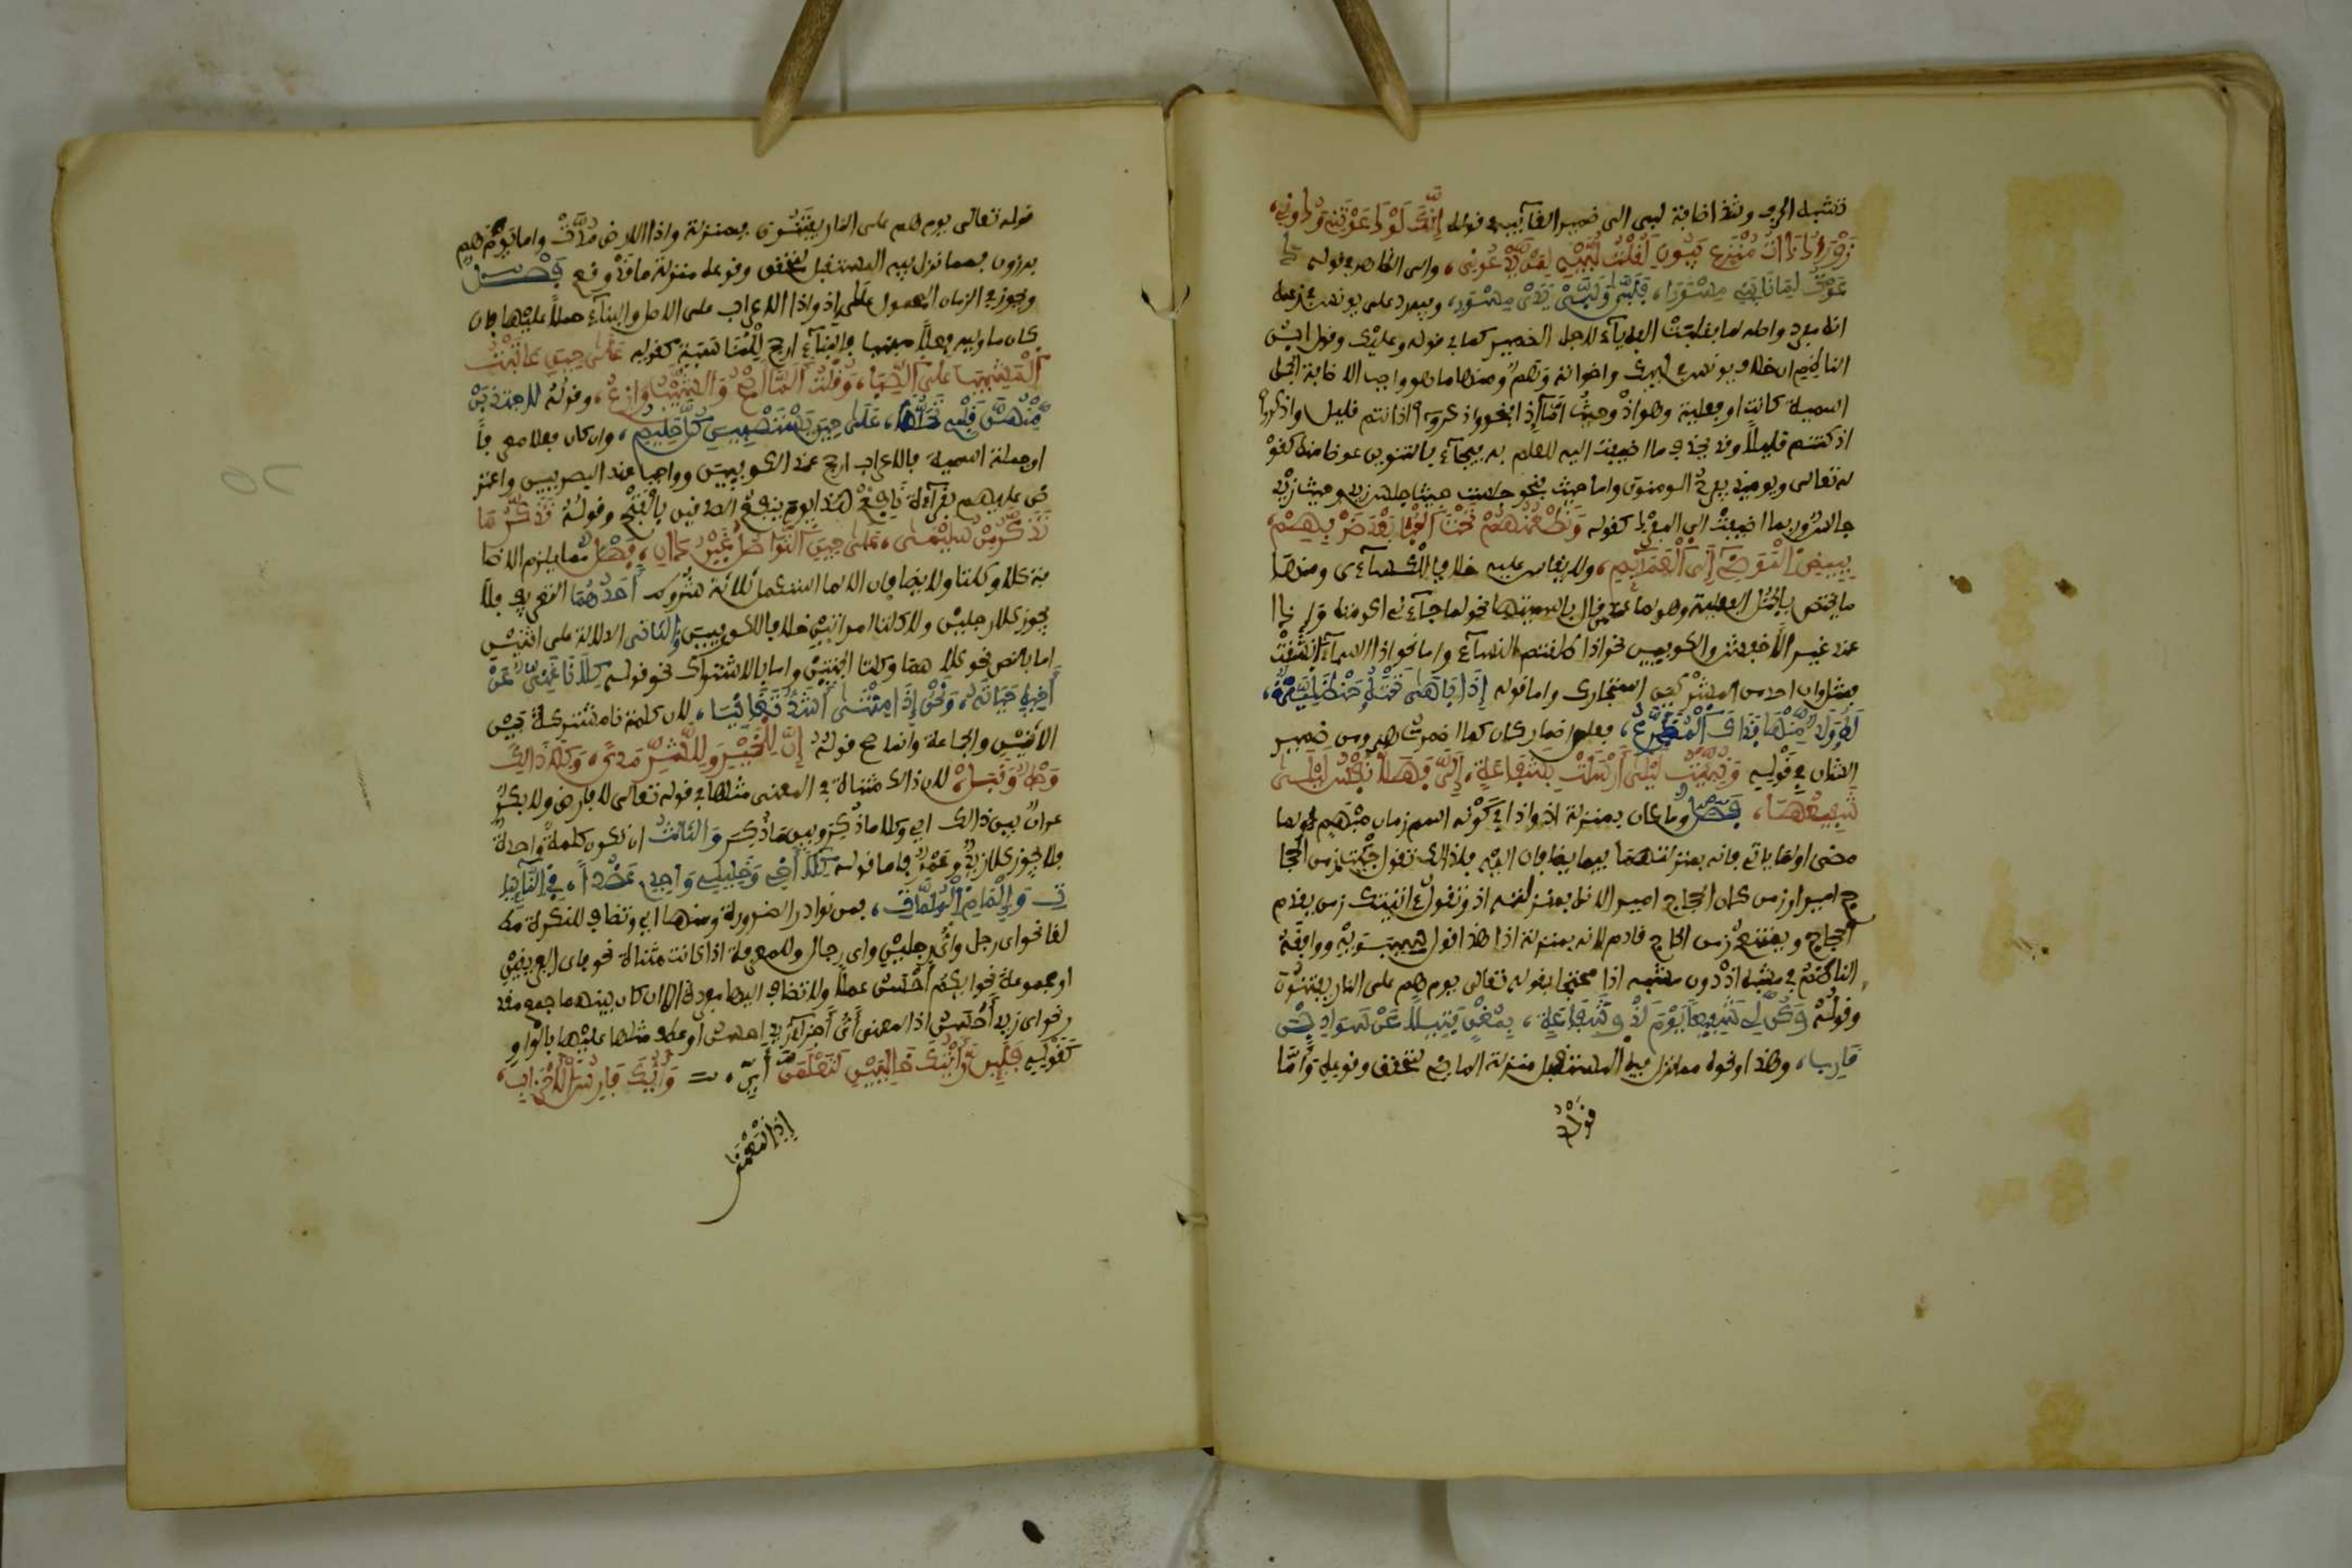 تشبه الحرف وشذ اضافة لبى الى ضمير الغآئب في قوله إِنَّكَ لَوْ دَعَوْتَنِي وَدُونِي،
زَوْرَآءُ ذَاتُ مُنْزَعٍ بَيُونِ لَقُلْتُ لَبَّيْهِ لِمَنْ يَدْعُونِي، والى الظاهر في قوله
دَعَوْتُ لِمَا نَابَنِي مِسْوَرًا، فَلَبَّى فَلَبَّيْ يَدَيْ مِسْوَرِ، وفيه رد على يونس في زعمه
انه مفرد واصله لبا فقلبت الفه يآء لاجل الضمير كما في لديه وعليك وقول ابن
الناظم ان خلاف يونس في لبيك واخواته وهم ومنها ما هو واجب الاضافة الى الجمل
اسمية كانت او فعلية وهو اذ وحيث اما اذ فنحو واذكروا اذ انتم قليل واذكروا
اذ كنتم قليلاً وقد يحذف ما اضيفت اليه للعلم به فيجآء بالتنوين عوضا منه كقو
له تعالى ويومئذ يفرح المومنون واما حيث فنحو جلست حيث جلس زيد وحيث زيد
جالس وربما اضيفت الى المفرد كقوله وَنَطْعَنُهُمْ تَحْتَ الْحُبَا بَعْدَ ضَرْبِهِمْ
بِبِيضِ الْمَوَاضِي لَيَّ الْعَمَآئِمِ، ولا يقاس عليه خلافا للكسآءى ومنها
ما يختص بالجمل الفعلية وهو لما عند من قال باسميتها نحو لما جآءنى اكرمته واذا
عند غير الاخفش والكوفيين نحو اذا طلقتم النسآء واما نحو اذا السمآء انشقت
فمثل وان احد من المشركين استجارك واما قوله إِذَا بَاهِلِيٌّ تَحْتَهُ حَنْظَلِيَّةٌ،
لَهُ وَلَدٌ مِنْهَا فَذَاكَ الْمُذَرَّعُ، فعلى اضمار كان كما اضمرت هي وضمير
الشان في قوله وَنُبِّئْتُ لَيْلَى أَرْسَلَتْ بِشَفَاعَةٍ، إِلَيَّ فَهَلَّا نَفْسُ لَيْلَى
شَفِيعُهَا، فصل وما كان بمنزلة اذ واذا في كونه اسم زمان مبهم لما
مضى او لما ياتى فانه بمنزلتهما فيما يضافان اليه فلذلك تقول جئتك زمن الحجا
ج امير او زمن كان الحجاج امير لانه بمنزلة اذ وتقول ءاتيتك زمن يقدم
الحجاج ويمتنع زمن الحاج قادم لانه بمنزلة اذا هذا قول سيبويه ووافقه
الناظم في مشبه اذ دون مشبه اذا محتجا بقوله تعالى يوم هم على النار يفتنون
وقوله وَكُنْ لِي شَفِيعاً يَوْمَ لَا ذُو شَفَاعَةٍ، بِمُغْنٍ فَتِيلاً عَنْ سَوَادِ بْنِ
قَارِبِ، وهذا ونحوه مما نزل فيه المستقبل منزلة الماضى لتحقق وقوعه وأمّا
قوله
قوله تعالى يوم هم على النار يفتنون فبمنزلة واذا الارض مدت واما يوم هم
برزون فمما نزل فيه المستقبل لتحقق وقوعه منزلة ما قد وقع فصل
ويجوز في الزمان المحمول على اذ واذا الاعراب على الاصل والبنآء حملا عليهما فان
كان ما وليه فعلاً مبنيا فالبنآء ارجح للتناسب كقوله عَلَى حِينِ عَاتَبْتُ
الْمَشِيبَ عَلَى الصِّبَا، وَقُلْتُ أَلَمَّا أَصْحُ وَالشَّيْبُ وَازِعُ، وقوله لاجتذبن
مِنْهُنَّ قَلْبِي تَحَلُّماً، عَلَى حِينَ يَسْتَصْبِينَ كُلَّ حَلِيمِ، وان كان فعلا معربا
او جملة اسمية فالاعراب ارجح عند الكوفيين وواجب عند البصريين واعتر
ض عليهم بقرآءة نافع هذا يوم ينفع الصدقين بالفتح وقوله تَذَكَّرَ مَا
تَذَكَّرَ مِنْ سُلَيْمَى، عَلَى حِينَ التَّوَاصُلُ غَيْرُ دَانِ، فصل مما يلزم الاضا
فة كلا وكلتا ولا يضافان الا لما استكمل ثلاثة شروط أحدهما التعريف فلا
يجوز كلا رجلين ولا كلتا امراتين خلافا للكوفيين والثانى الدلالة على اثنين
اما بالنص نحو كلاهما وكلتا الجنتين واما بالاشتراك نحو قوله كِلَانَا غَنِيٌّ عَنْ
أَخِيهِ حَيَاتَهُ، وَنَحْنُ إِذَا مِتْنَى أَشَدُّ تَغَانِيَا، لان كلمة نا مشتركة بين
الاثنين والجماعة وانما صح قوله إِنَّ لِلْخَيْرِ وَلِلشَّرِّ مَدًى، وَكِلَا ذَالِكَ
وَجْهٌ وَقَبَلْ، لان ذالك مثناة في المعنى مثلها في قوله تعالى لا فارض ولا بكر
عوان بين ذالك اي وكلا ما ذكر وبين ما ذكر والثالث ان تكون كلمة واحدة
فلا يجوز كلا زيد وعمرو فاما قوله كِلَا أَخِي وَخَلِيلِي وَاجِدِي عَضُداً، فِي النَّآئِبَا
تِ وَإِلْمَامِ الْمُلِمَّاتِ، فمن نوادر الضرورة ومنها اي وتضاف للنكرة مط
لقا نحو اى رجل واى رجلين واى رجال وللمعرفة اذا كانت مثناة نحو فاى الفريقين
او مجموعة نحو ايكم أحسن عملا ولا تضاف اليها مفردة الا ان كان بينهما جمع مقد
ر نحو اى زيد أحسن اذ المعنى أى أجزآء زيد احسن او عطف مثلها عليها بالواو
كقوله فَلَئِنْ لَقِيتُكَ خَالِيَيْنِ لَتَعْلَمَنْ، أَيِّي وَأَيُّكَ فَارِسُ الْأَحْزَابِ،